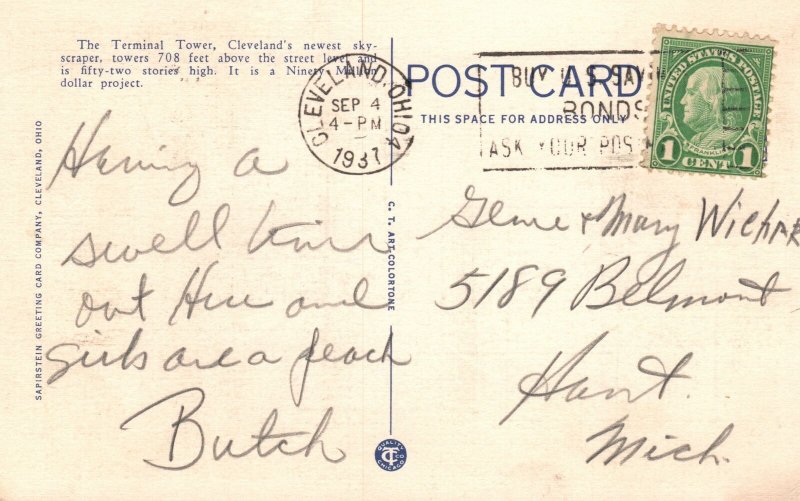 The Terminal Tower, Cleveland's newest sky-
scraper, towers 708 feet above the street level and
is fifty-two stories high. It is a Ninety Million
dollar project.
POST CARD
THIS SPACE FOR ADDRESS ONLY
CLEVELAND, OHIO
SEP 4
4-PM
1937
BUY U.S. SAV
BONDS
ASK YOUR POS
UNITED STATES POSTAGE
FRANKLIN
1 CENT 1
SAPIRSTEIN GREETING CARD COMPANY, CLEVELAND, OHIO
C. T. ART-COLORTONE
Having a
swell time
out Here and
girls are a peach
Butch
Gene & Mary Wichar
5189 Belmont
Hamt.
Mich.
QUALITY
CT CO
CHICAGO